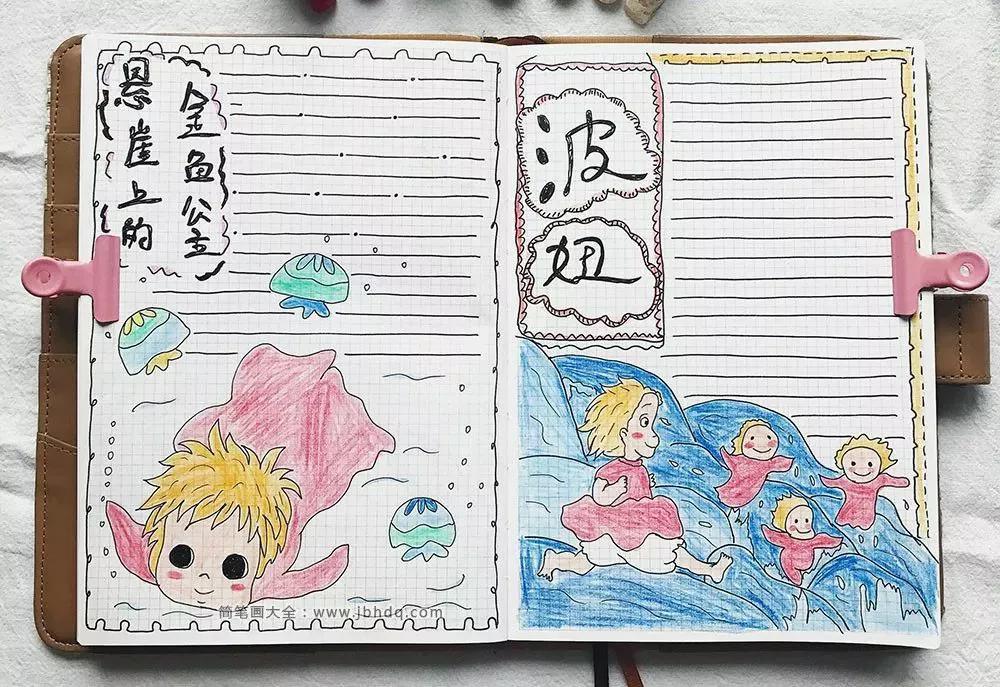 悬崖上的
金鱼公主
波
妞
简笔画大全：www.jbhdq.com